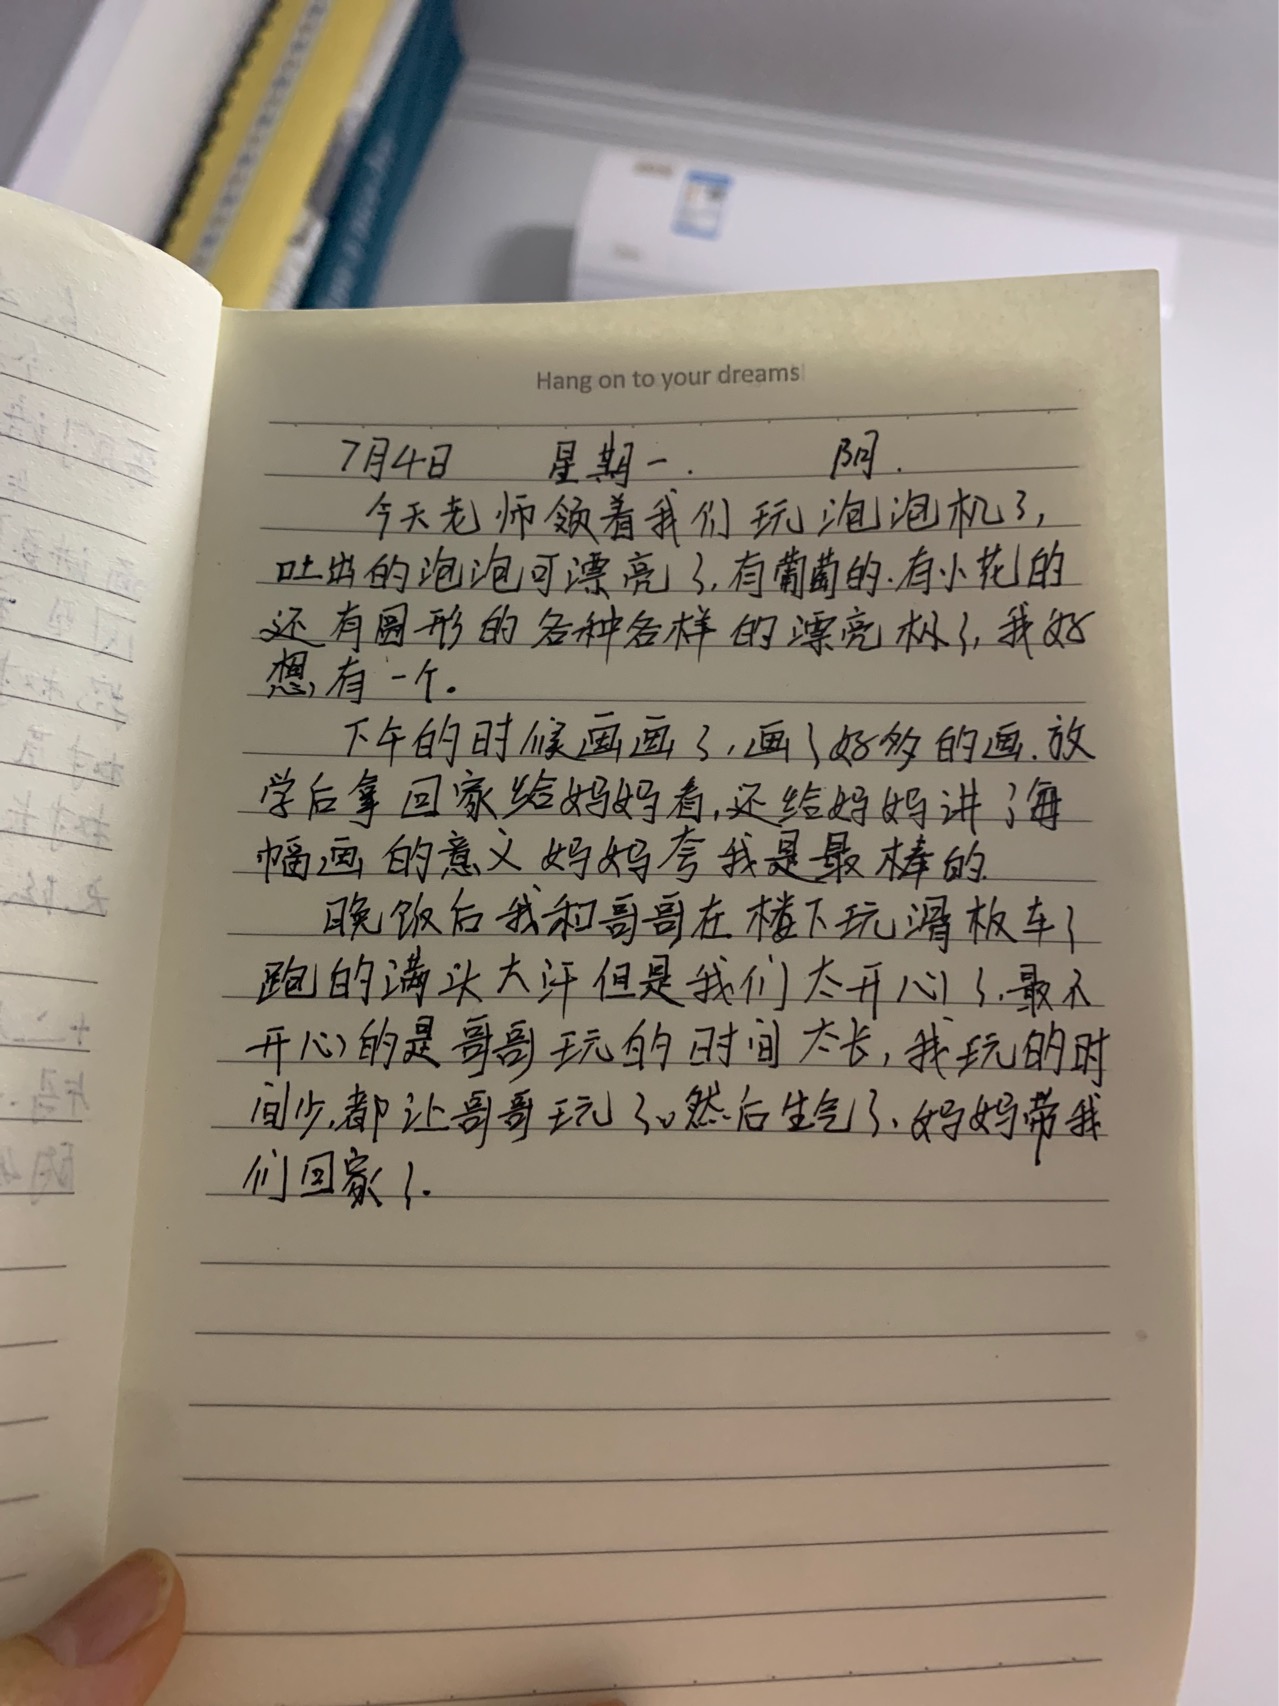 Hang on to your dreams
7月4日 星期一. 阴.
今天老师领着我们玩泡泡机了,
吐出的泡泡可漂亮了,有葡萄的.有小花的
还有圆形的各种各样的漂亮极了,我好
想有一个.
下午的时候画画了,画了好多的画.放
学后拿回家给妈妈看,还给妈妈讲了每
幅画的意义妈妈夸我是最棒的
晚饭后我和哥哥在楼下玩滑板车了
跑的满头大汗但是我们太开心了.最不
开心的是哥哥玩的时间太长,我玩的时
间少,都让哥哥玩了。然后生气了、妈妈带我
们回家了.